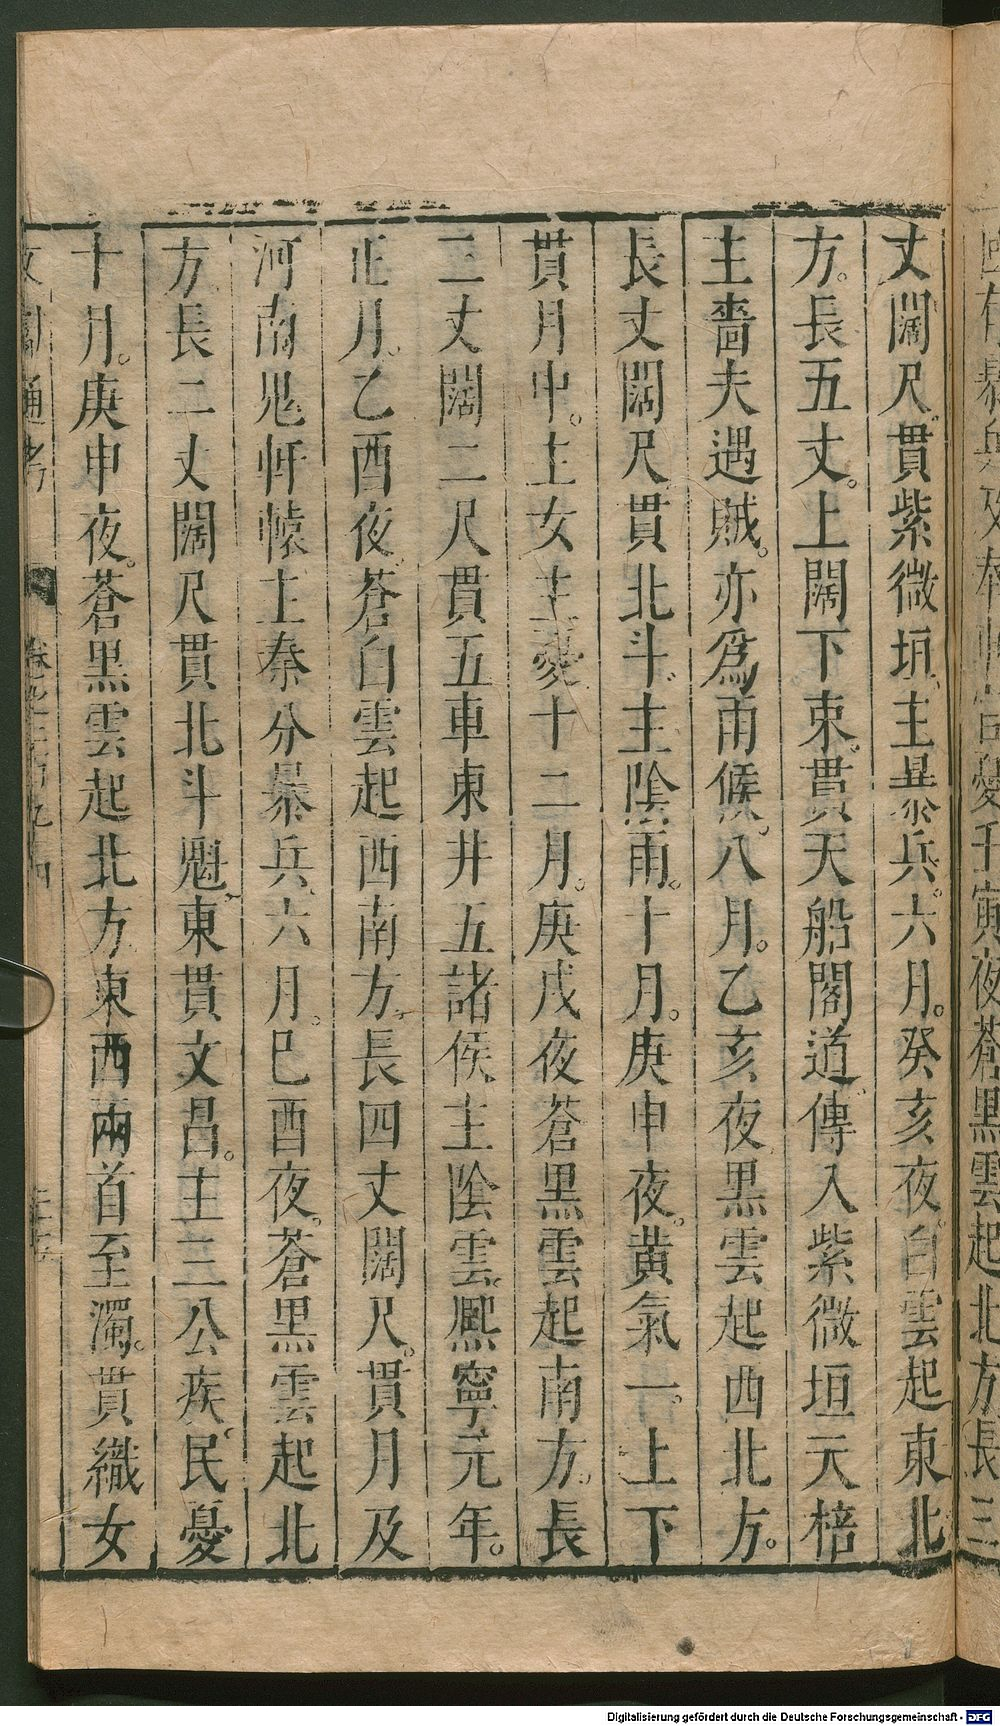 夜蒼黑雲起北方長三
丈闊尺貫紫微垣主暴兵六月。癸亥夜白雲起東北
方。長五丈。上闊下束貫天船閣道傳入紫微垣天棓
主嗇夫遇賊。亦爲雨候。八月。乙亥夜黑雲起西北方。
長丈闊尺貫北斗。主陰雨。十月。庚申夜。黄氣一。上下
貫月中。主女主憂十二月。庚戌夜蒼黑雲起南方。長
三丈闊二尺貫五車東井五諸侯、主陰雲。熈寧元年。
正月。乙酉夜。蒼白雲起西南方。長四丈闊尺。貫月及
河南 主秦分暴兵、六月。巳酉夜。蒼黑雲起北
方、長二丈闊尺貫北斗魁、東貫文昌。主三公疾、民憂
十月。庚申夜。蒼黑雲起北方、東西兩首至濁。貫織女
通考